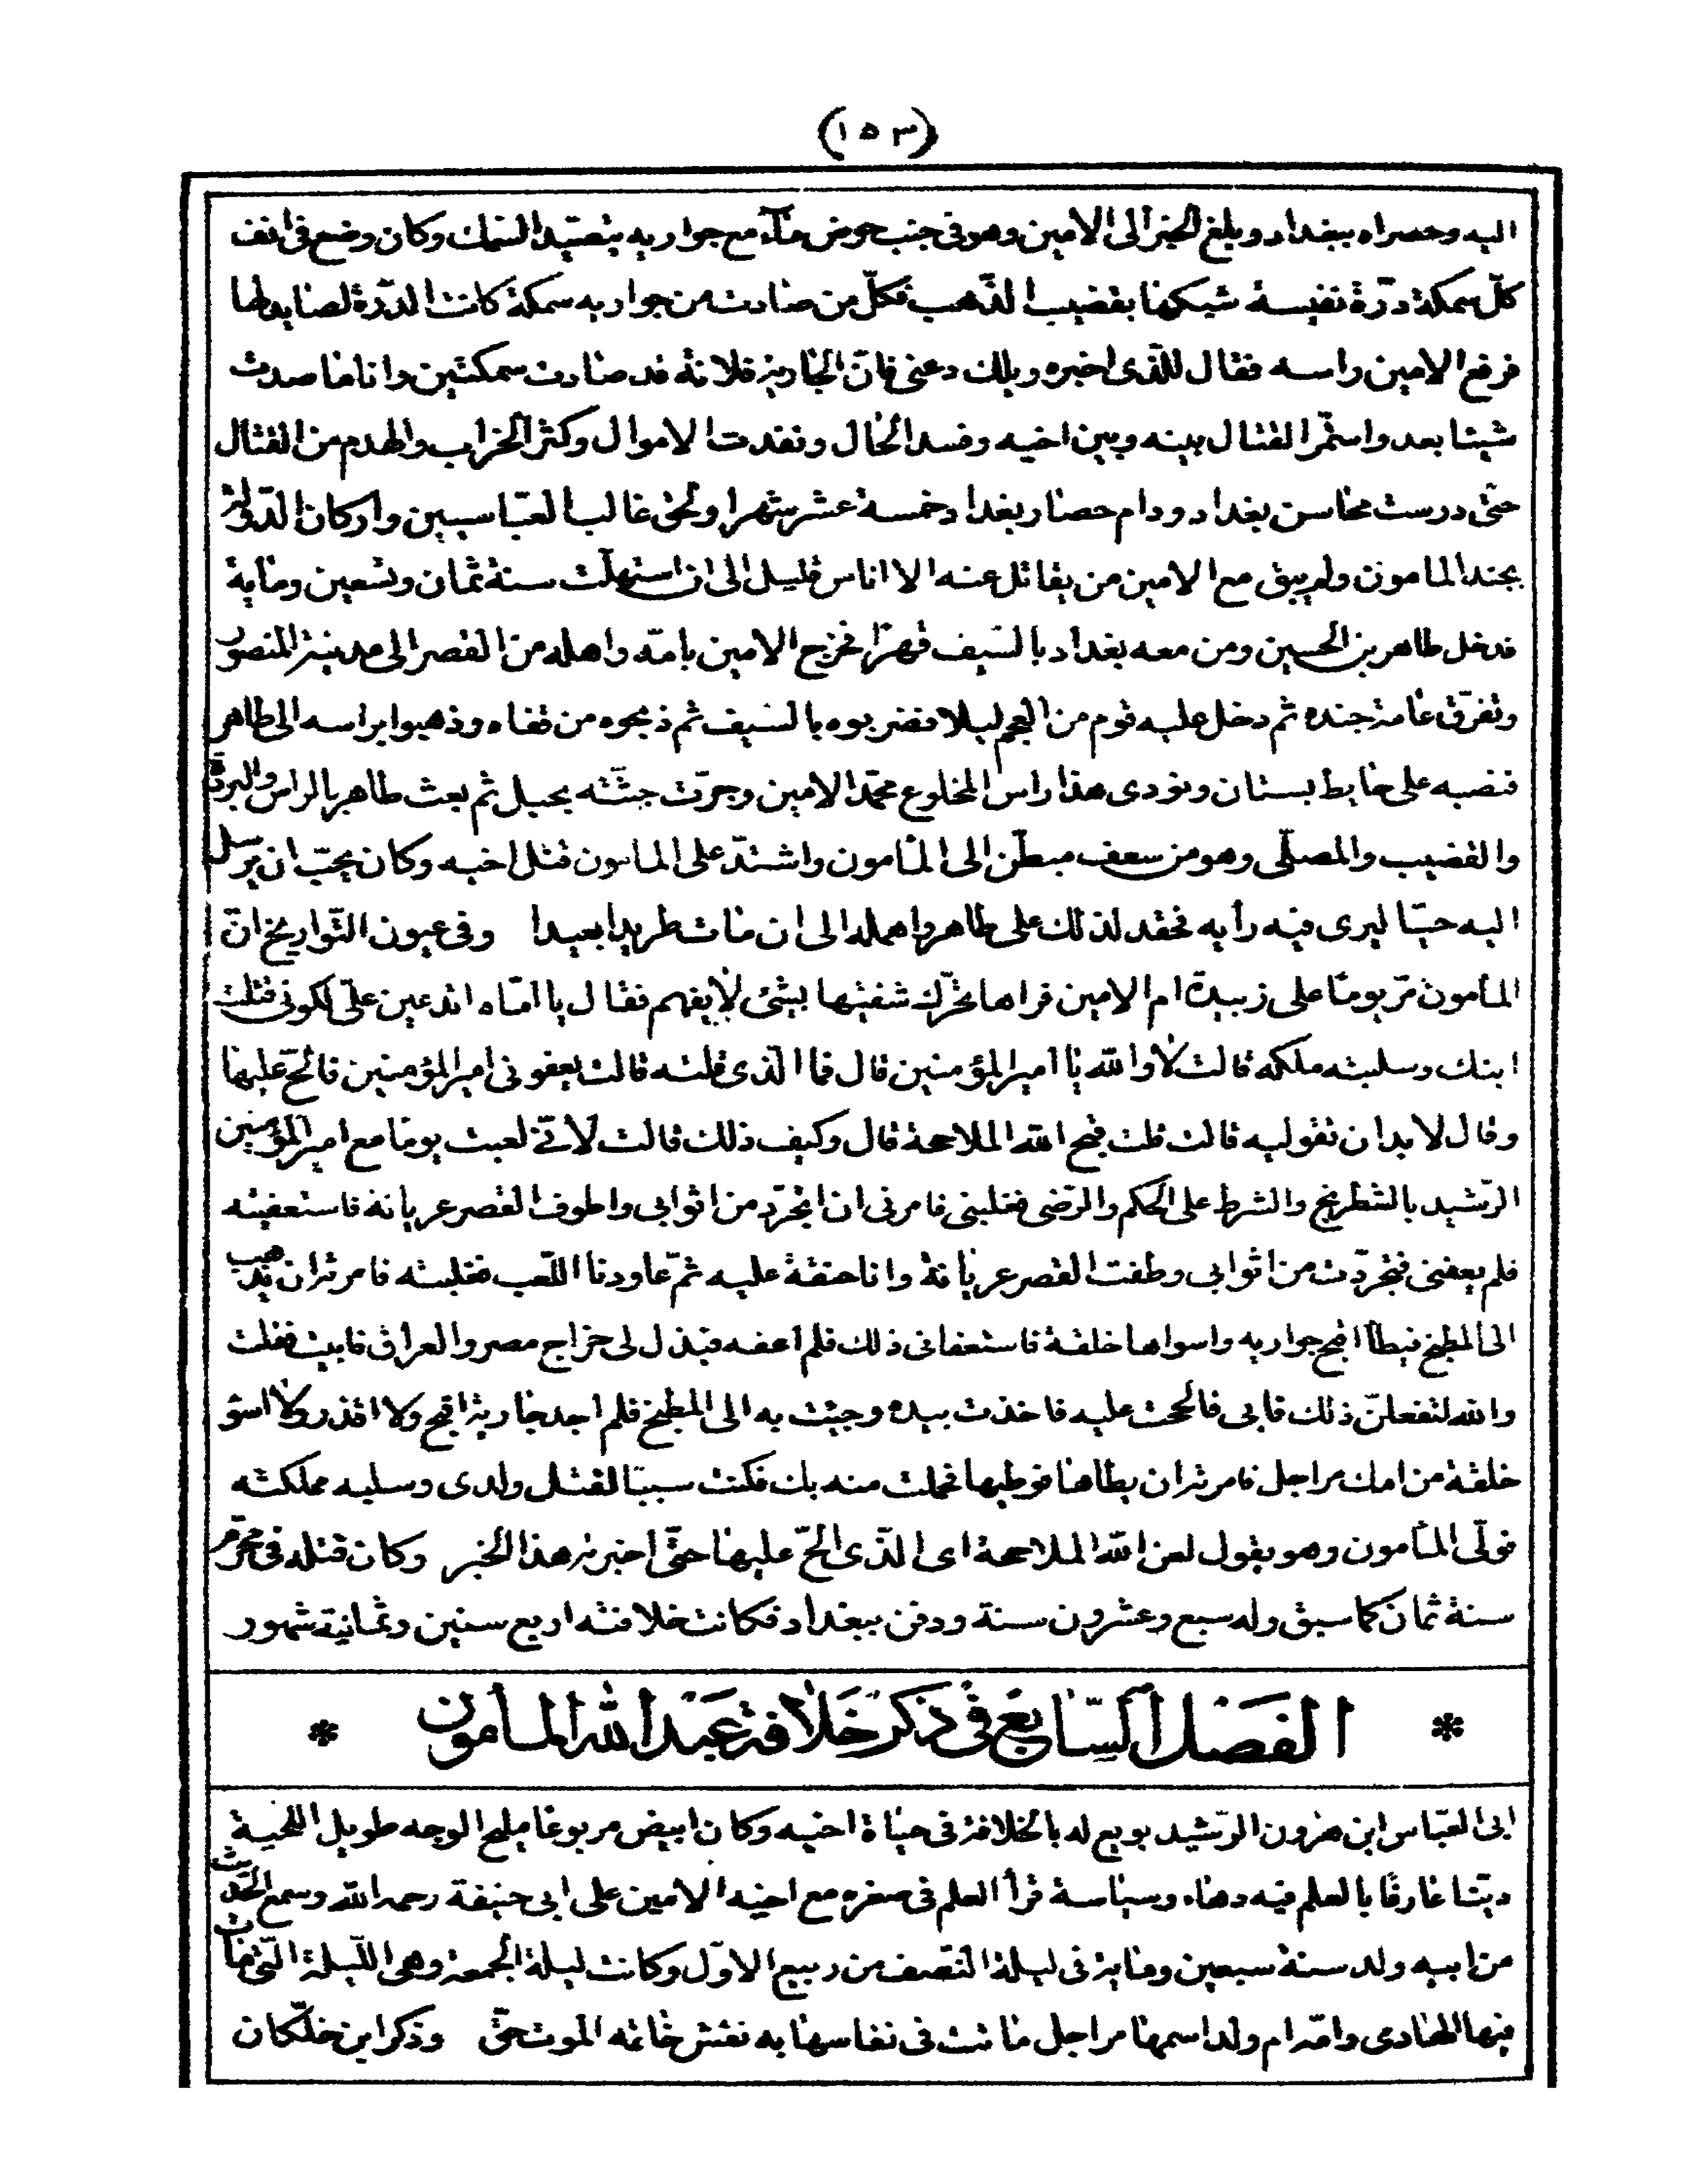 (١٥٣)
اليه وحصراه ببغداد وبلغ الخبر الى الامين وهو فى جنب حوض ماء مع جواريه يتصيد السمك وكان وضع فى انف
كلّ سمكة درّة نفيسة شبكها بقضيب الذّهب فكلّ من صادت من جواريه سمكة كانت الدرّة لصايدها
فرفع الامين راسه فقال للّذى اخبره ويلك دعنى فانّ الجارية فلانة قد صادت سمكتين وانا ما صدت
شيئا بعد واستمرّ القتال بينه وبين اخيه وفسد الحال ونفدت الاموال وكثر الخراب والهدم من القتال
حتّى درست محاسن بغداد ودام حصار بغداد خمسة عشر شهرا ولحق غالب العبّاسيين واركان الدّولة
بجند المامون ولم يبق مع الامين من يقاتل عنه الا اناس قليل الى ان استهلّت سنة ثمان وتسعين وماية
فدخل طاهر بن الحسين ومن معه بغداد بالسّيف قهرًا فخرج الامين بامّه واهله من القصر الى مدينة المنصور
وتفرّق عامة جنده ثم دخل عليه قوم من العجم ليلا فضربوه بالسّيف ثم ذبحوه من قفاه وذهبوا براسه الى طاهر
فنصبه على حايط بستان ونودى هذا راس المخلوع محمّد الامين وجرّت جثّته بحبل ثم بعث طاهر بالراس والبردة
والقضيب والمصلّى وهو من سعف مبطّن الى المأمون واشتدّ على المامون قتل اخيه وكان يحبّ ان يرسل
اليه حيّا ليرى فيه رأيه فحقد لذلك على طاهر واهمله الى ان مات طريدا بعيدا وفى عيون التّواريخ انّ
المأمون مرّ يومًا على زبيدة ام الامين فراها تحرّك شفتيها بشئ لا يفهم فقال يا امّاه اتدعين علىّ لكونى قتلت
ابنك وسلبته ملكه قالت لا والله يا امير المؤمنين قال فما الّذى قلته قالت يعفونى امير المؤمنين فالحّ عليها
وقال لا بد ان تقوليه قالت قلت قبح الله الملاحة قال وكيف ذلك قالت لانّى لعبت يوما مع امير المؤمنين
الرّشيد بالشطرنج والشرط على الحكم والرّضى فغلبنى فامرنى ان اتجرّد من اثوابى واطوف القصر عريانة فاستعفيته
فلم يعفنى فتجرّدت من اثوابى وطفت القصر عريانة وانا حنقة عليه ثمّ عاودنا اللّعب فغلبته فامرته ان يذهب
الى المطبخ فيطأ اقبح جواريه واسواها خلقة فاستعفانى ذلك فلم اعفه فبذل لى خراج مصر والعراق فابيت فقلت
والله لتفعلنّ ذلك فابى فالححت عليه فاخذت بيده وجيئت به الى المطبخ فلم اجد جارية اقبح ولا اقذر ولا اسؤ
خلقة من امك مراجل فامرته ان يطاها فوطيها فحملت منه بك فكنت سببا لقتل ولدى وسلبه مملكته
فولّى المأمون وهو يقول لعن الله الملاحة اى الّذى الحّ عليها حتّى اخبرته هذا الخبر وكان قتله فى محرّم
سنة ثمان كما سبق وله سبع وعشرون سنة ودفن ببغداد فكانت خلافته اربع سنين وثمانية شهور
* الفصل السّابع فى ذكر خلافة عبد الله المأمون *
ابى العبّاس ابن هرون الرّشيد بويع له بالخلافة فى حياة اخيه وكان ابيض مربوعا مليح الوجه طويل اللحية
ديّنا عارفًا بالعلم فيه دهاء وسياسة قرأ العلم فى صغره مع اخيه الامين على ابى حنيفة رحمه الله وسمع الحديث
من ابيه ولد سنة سبعين وماية فى ليلة النّصف من ربيع الاوّل وكانت ليلة الجمعة وهى اللّيلة الّتى مات
فيها الهادى وامّه ام ولد اسمها مراجل ماتت فى نفاسها به نقش خاتمه الموت حقّ وذكر ابن خلّكان